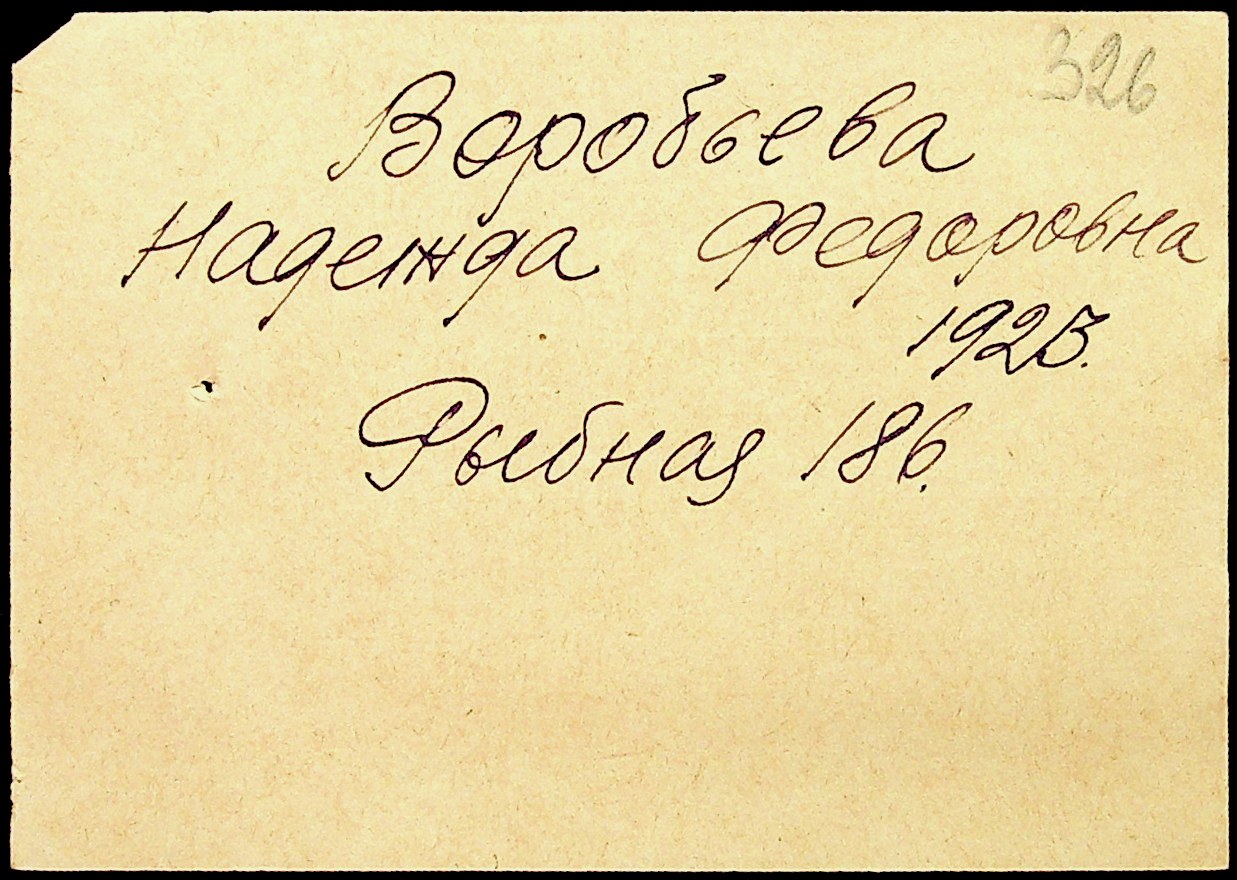 326
Воробьева
Надежда Федоровна
1923.
Рыбная 186.